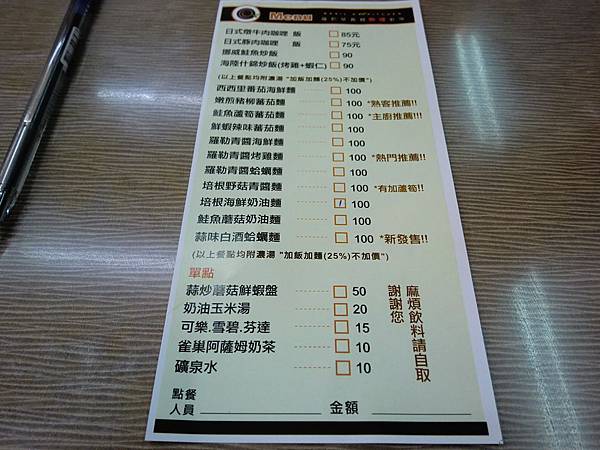 Menu
日式燉牛肉咖哩 飯 □ 85元
日式豚肉咖哩 飯 □ 75元
挪威鮭魚炒飯 □ 90
海陸什錦炒飯(烤雞+蝦仁) □ 90
(以上餐點均附濃湯 "加飯加麵(25%)不加價")
西西里番茄海鮮麵 □ 100
嫩煎豬柳蕃茄麵 □ 100 *熟客推薦!!
鮭魚蘆筍蕃茄麵 □ 100 *主廚推薦!!!
鮮蝦辣味蕃茄麵 □ 100
羅勒青醬海鮮麵 □ 100
羅勒青醬烤雞麵 □ 100 *熱門推薦!!
羅勒青醬蛤蠣麵 □ 100
培根野菇青醬麵 □ 100 *有加蘆筍!!
培根海鮮奶油麵 □ 100
鮭魚蘑菇奶油麵 □ 100
蒜味白酒蛤蠣麵 □ 100 *新發售!!
(以上餐點均附濃湯 "加飯加麵(25%)不加價")
單點
蒜炒蘑菇鮮蝦盤 □ 50
奶油玉米湯 □ 20
可樂.雪碧.芬達 □ 15
雀巢阿薩姆奶茶 □ 10
礦泉水 □ 10
麻煩飲料請自取
謝謝您
點餐
人員 金額